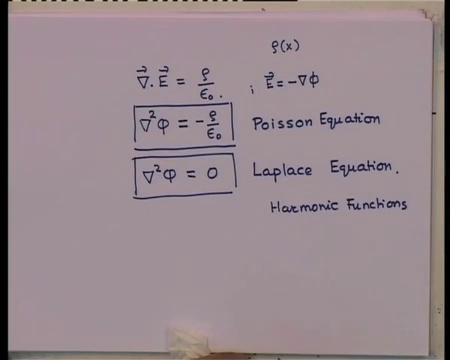 ρ(x)
∇⃗.E⃗ = ρ/ε₀. ; E⃗ = -∇Φ
∇²Φ = -ρ/ε₀ Poisson Equation
∇²Φ = 0 Laplace Equation.
Harmonic Functions